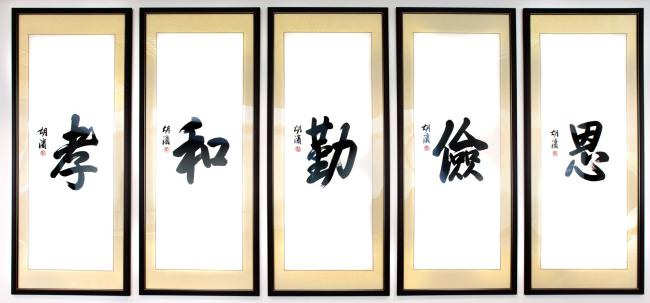 孝
胡濱
和
胡濱
勤
胡濱
儉
胡濱
恩
胡濱